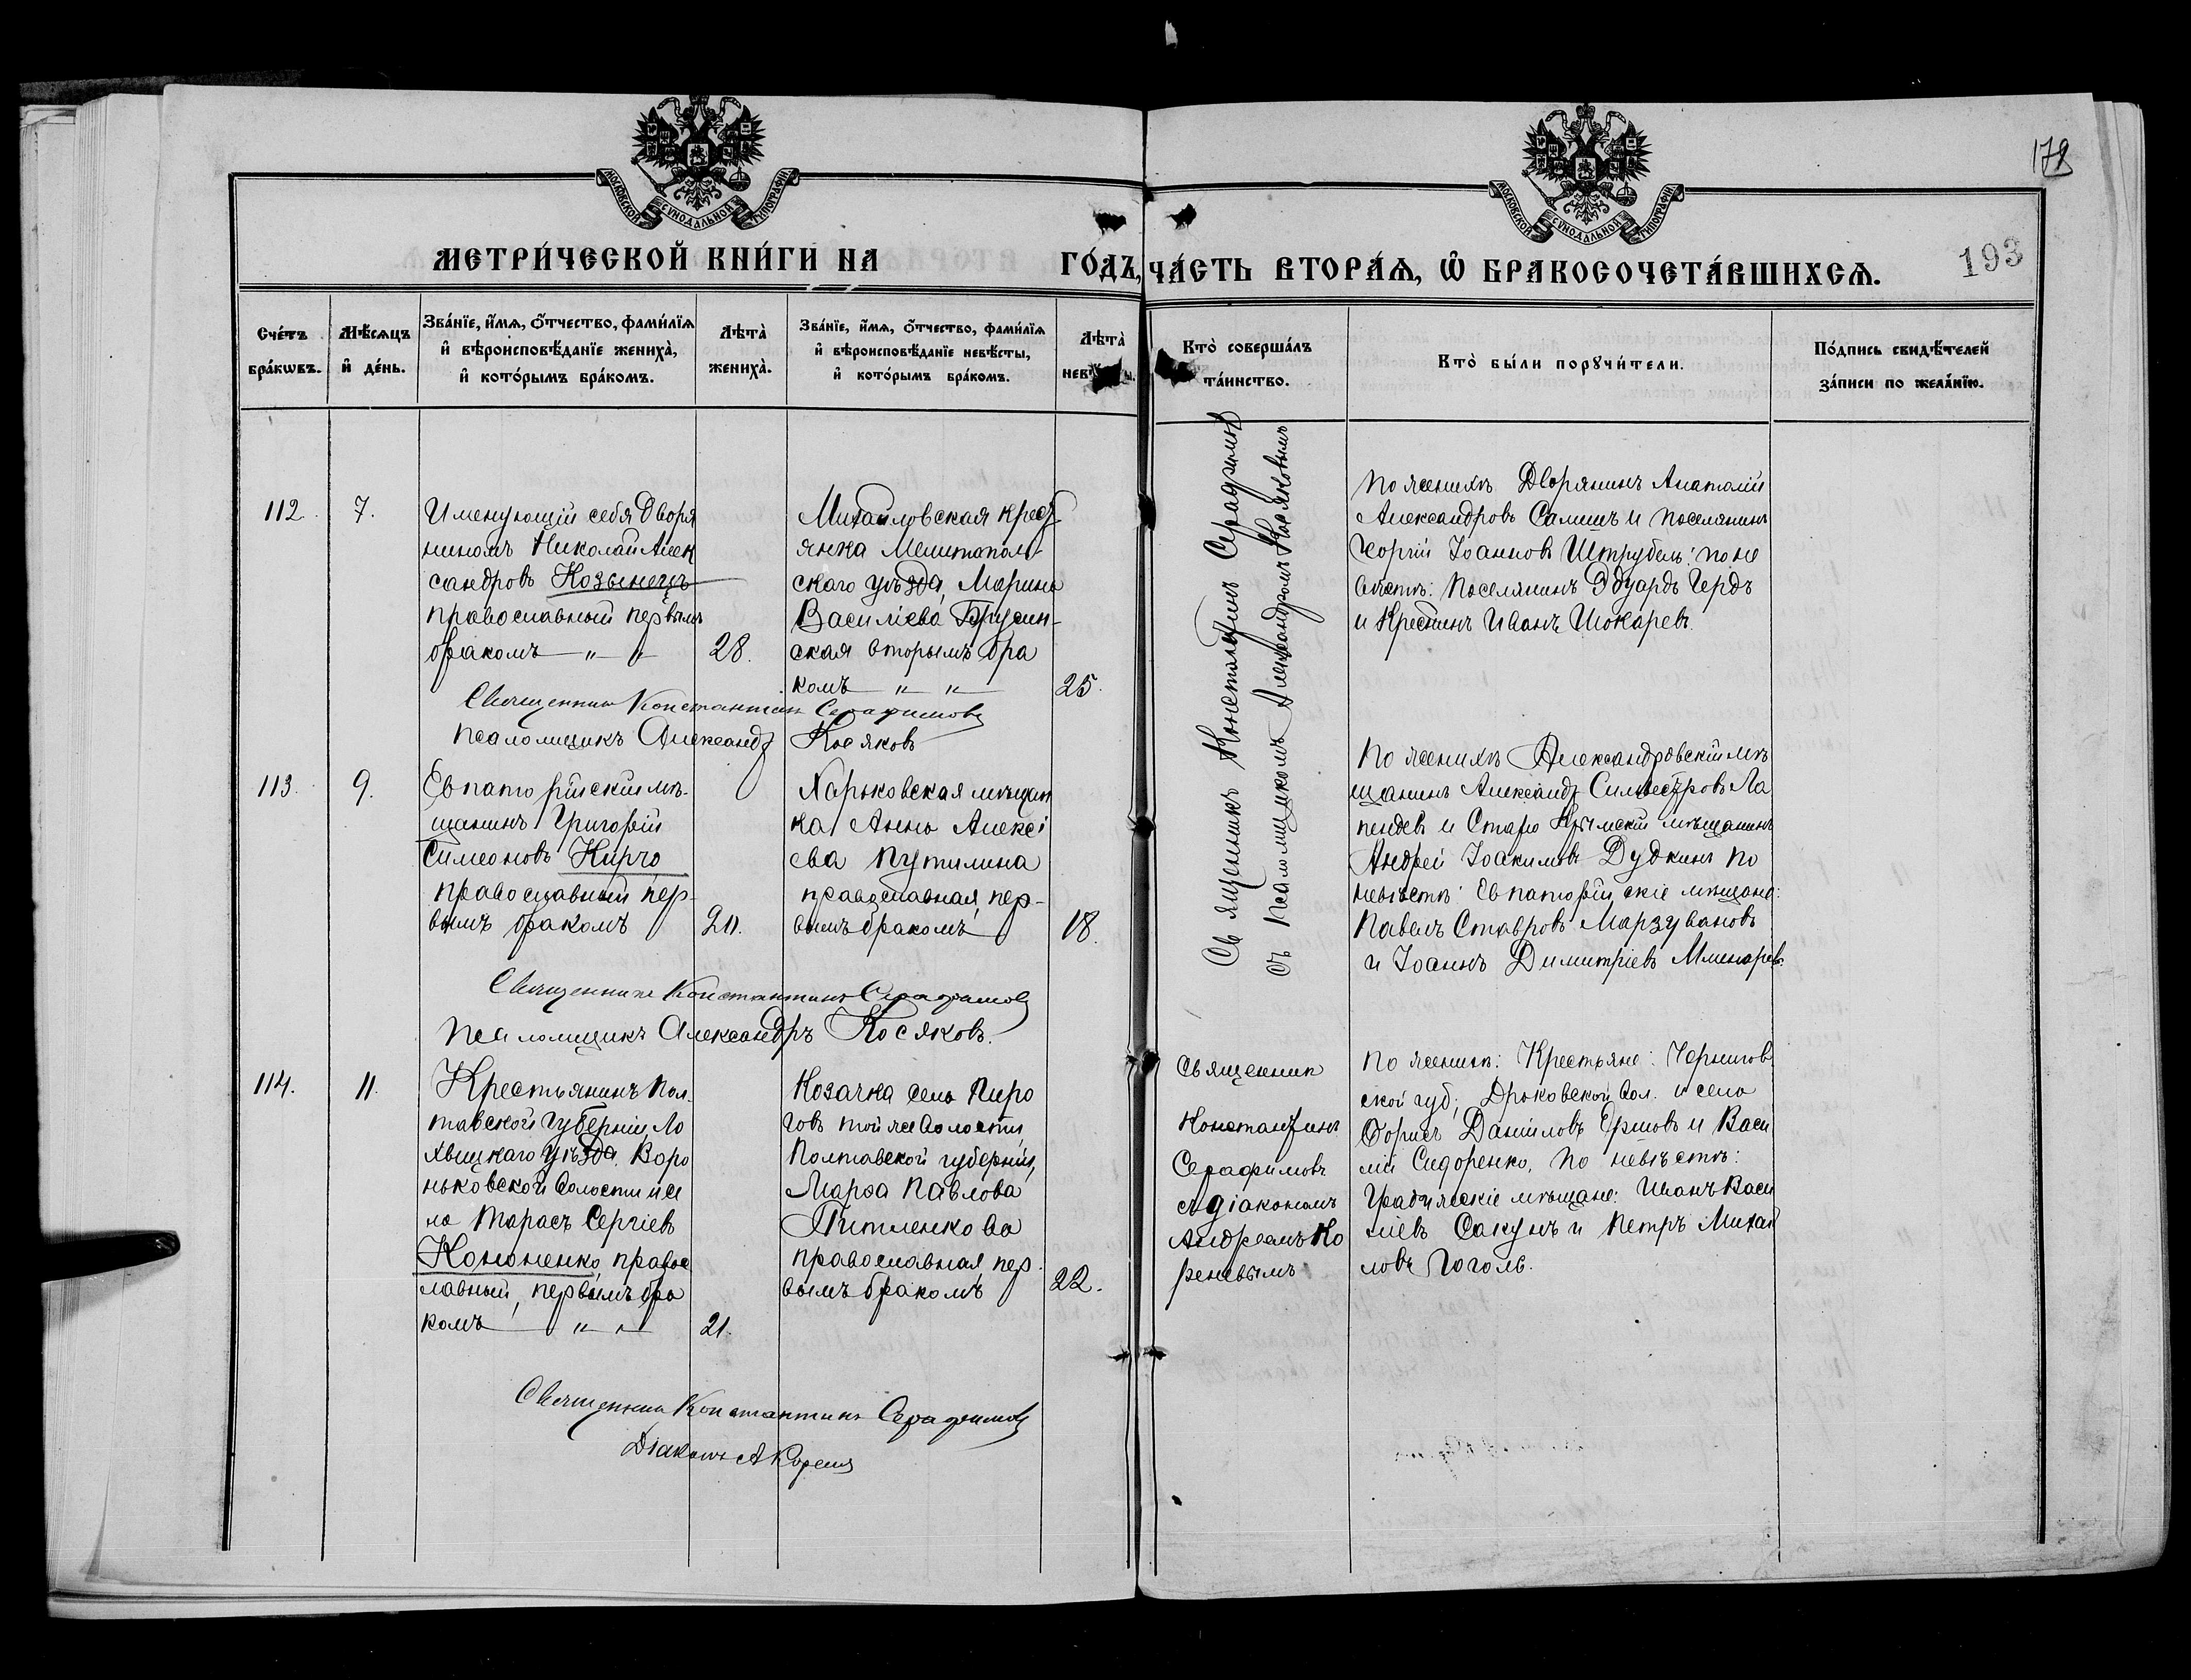 МОСКОВСКОЙ СѴНОДАЛЬНОЙ ТИПОГРАФІИ
МОСКОВСКОЙ СѴНОДАЛЬНОЙ ТИПОГРАФІИ
193
МЕТРИ́ЧЕСКОЙ КНИ́ГИ НА ГО́ДЪ, ЧА́СТЬ ВТОРА́Ѧ, Ѡ БРАКОСОЧЕТА́ВШИХСѦ.
Сче́тъ бра́кѡвъ.
Мѣ́сѧцъ и҆ де́нь.
Зва́нїе, и҆́мѧ, ѻ҆́тчество, фами́лїѧ
и҆ вѣроисповѣ́данїе жениха̀,
и҆ кото́рымъ бра́комъ.
Лѣта̀ жениха̀.
Зва́нїе, и҆́мѧ, ѻ҆́тчество, фами́лїѧ
и҆ вѣроисповѣ́данїе невѣ́сты,
и҆ кото́рымъ бра́комъ.
Лѣта̀
Кто̀ соверша́лъ
та́инство.
Кто̀ бы́ли порꙋчи́тели.
По́дпись свидѣ́телей
за́писи по жела́нїю.
112.
7.
Именующій себя Дворя
ниномъ Николай Алек
сандровъ Козынецъ
православный первымъ
бракомъ — " "
28.
Михайловская крест
янка Мелитополь-
скаго уѣзда, Марина
Василіева Брусин-
ская вторымъ бра
комъ — " "
25.
Священникъ Константинъ Серафимовъ
Псаломщикъ Александр Косяковъ
Священникъ Константинъ Серафимовъ
съ Псаломщикомъ Александромъ Косяковымъ
По женихѣ Дворянинъ Анатолій
Александровъ Салишъ и поселянинъ
Георгій Іоанновъ Штрубель: по не
вѣстѣ: Поселянинъ Эдуардъ Гердъ
и Крестинъ Иванъ Шокаревъ.
113.
9.
Евпаторійскій мѣ-
щанинъ Григорій
Симеоновъ Кирчо
православный пер-
вымъ бракомъ
Харьковская мѣщан
ка Анна Алексі
ева Путилина
православная, пер-
вымъ бракомъ
18.
Священникъ Константинъ Серафимовъ
Псаломщикъ Александръ Косяковъ.
По женихѣ Александровскій мѣ
щанинъ Александр Сильвестровъ Ла
и Старо Крымскій мѣщанинъ
Андрей Іоакимовъ Дудкинъ по
невѣстѣ: Евпаторійскіе мѣщане:
Павелъ Ставровъ Марзувановъ
и Іоаннъ Димитріевъ
114.
11.
Крестьянинъ Пол-
тавской губерніи, Ло
хвицкаго уѣзда, Воро
ньковской волости и се
ла Тарасъ Сергіевъ
Кононенко, правос
лавный, первымъ бра
комъ — " "
21.
Козачка села Пиро
говъ той же волости,
Полтавской губерніи,
Марѳа Павлова
Питленкова
православная пер-
вымъ бракомъ
22.
Священник
Константинъ
Серафимовъ
съ діакономъ
Андреемъ Ко
реневымъ
По женихѣ: Крестьяне: Чернигов
ской губ., вол. и села
Борисъ Даніиловъ Ершовъ и Васи
лій Сидоренко, по невѣстѣ:
Градижскіе мѣщане: Иванъ Васи
ліевъ Сакунъ и Петръ Михай
ловъ Гоголь.
Священникъ Константинъ Серафимовъ
Діаконъ А Корене